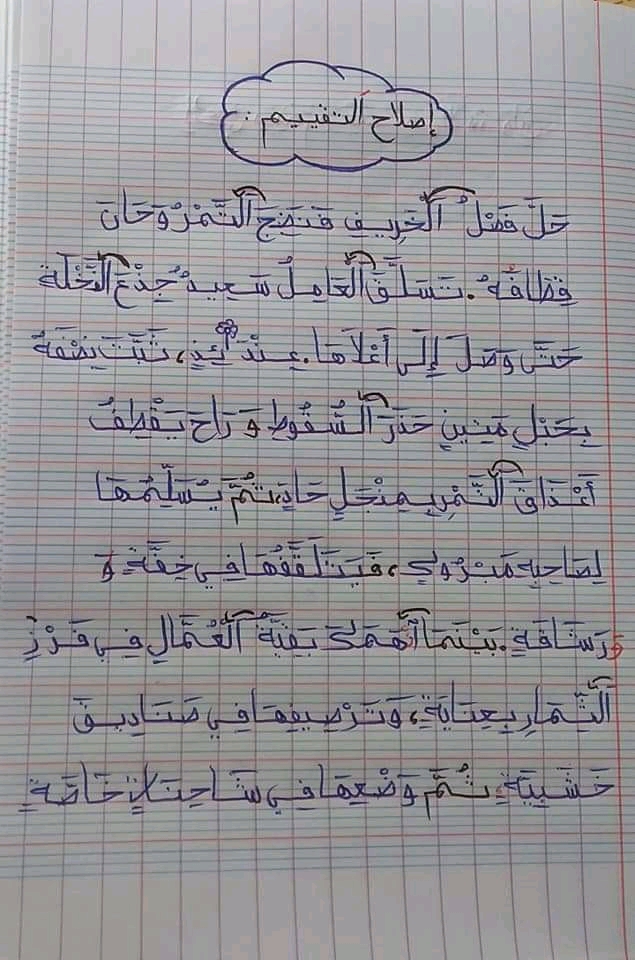 إصلاح التقييم :
حَلَّ فَصْلُ الْخَرِيفِ فَنَضِجَ التَّمْرُ وَحَانَ
قِطَافُهُ. تَسَلَّقَ الْعَامِلُ سَعِيدٌ جِذْعَ النَّخْلَةِ
حَتَّى وَصَلَ إِلَى أَعْلَاهَا. عِنْدَئِذٍ، ثَبَّتَ نِصْفَهُ
بِحَبْلٍ مَتِينٍ حَذَرَ السُّقُوطِ وَ رَاحَ يَقْطِفُ
أَعْذَاقَ التَّمْرِ بِمِنْجَلٍ حَادٍّ، ثُمَّ يُسَلِّمُهَا
لِصَاحِبِهِ مَبْرُوكٍ، فَيَتَلَقَّفُهَا فِي خِفَّةٍ وَ
وَرَشَاقَةٍ. بَيْنَمَا انْهَمَكَ بَقِيَّةُ الْعُمَّالِ فِي فَرْزِ
الثِّمَارِ بِعِنَايَةٍ، وَتَرْصِيفِهَا فِي صَنَادِيقَ
خَشَبِيَّةٍ ثُمَّ وَضْعِهَا فِي شَاحِنَاتٍ خَاصَّةٍ